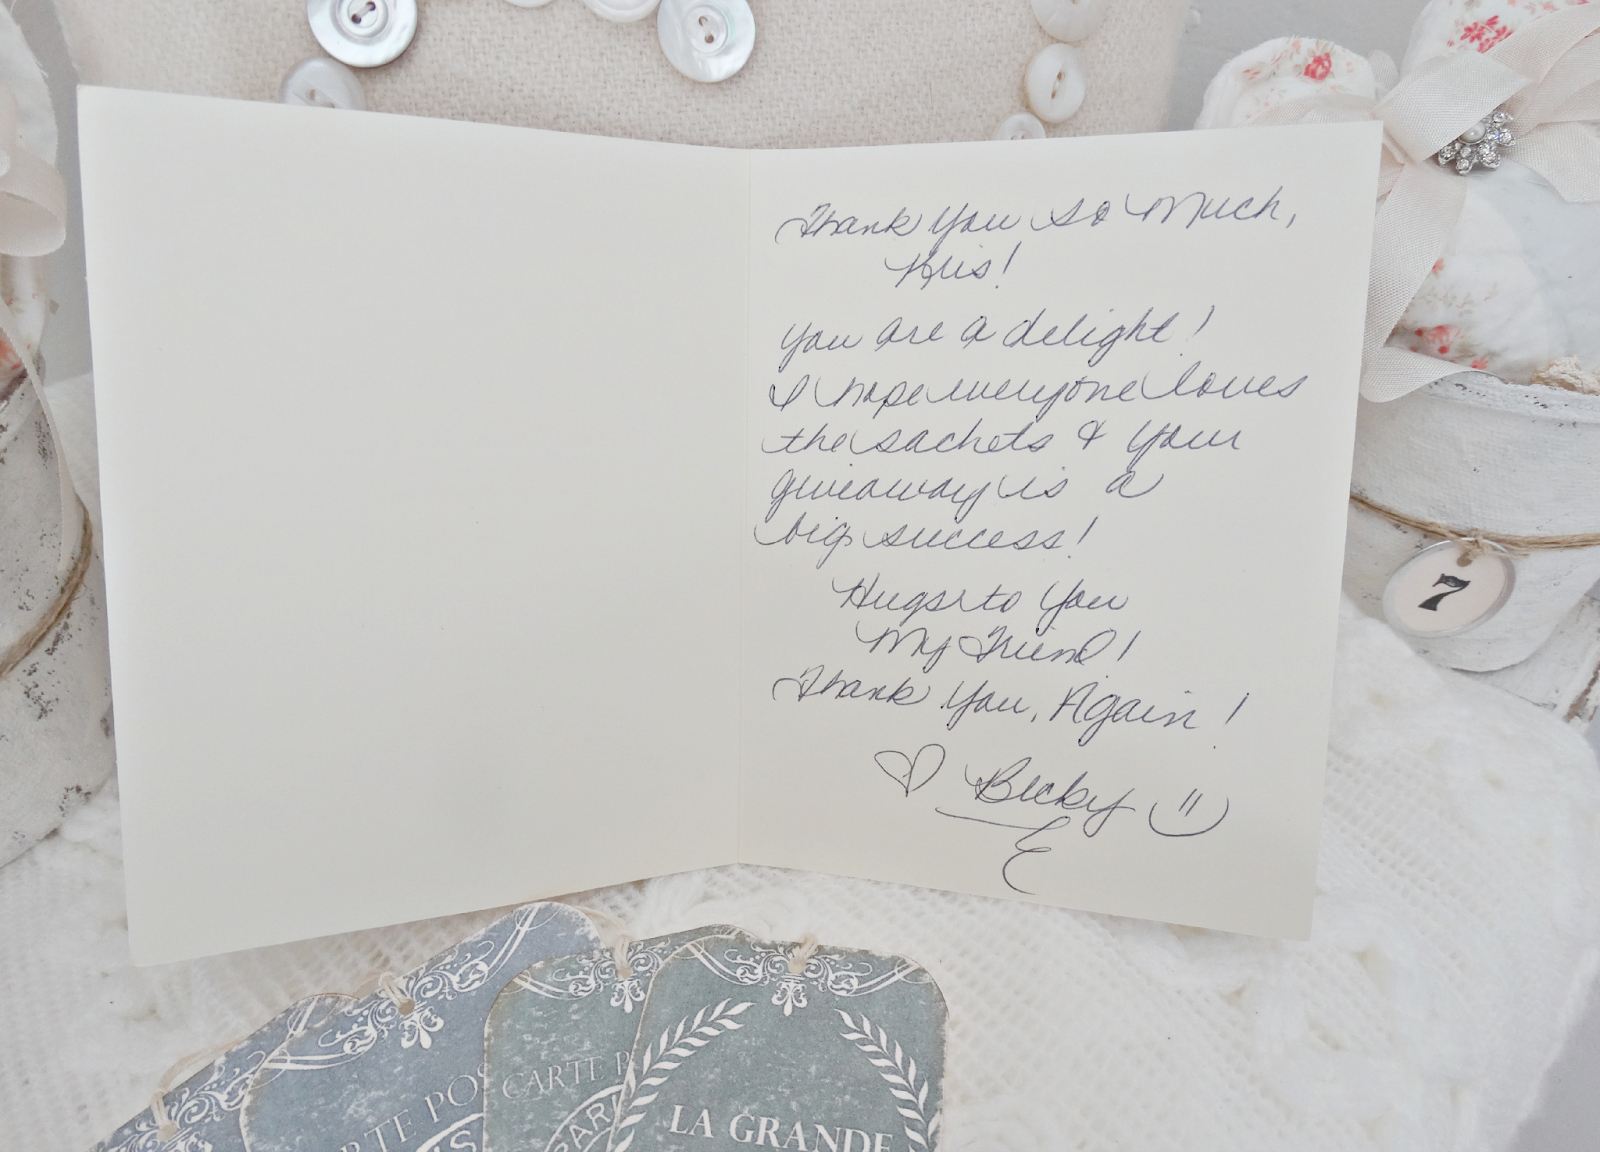 Thank You So Much,
Kris!
You are a delight!
I hope everyone loves
the sachets & your
giveaway is a
big success!
Hugs to You
My Friend!
Thank You, Again!
♡ Becky
7
CARTE POS
CARTE P
PARI
IS
LA GRANDE